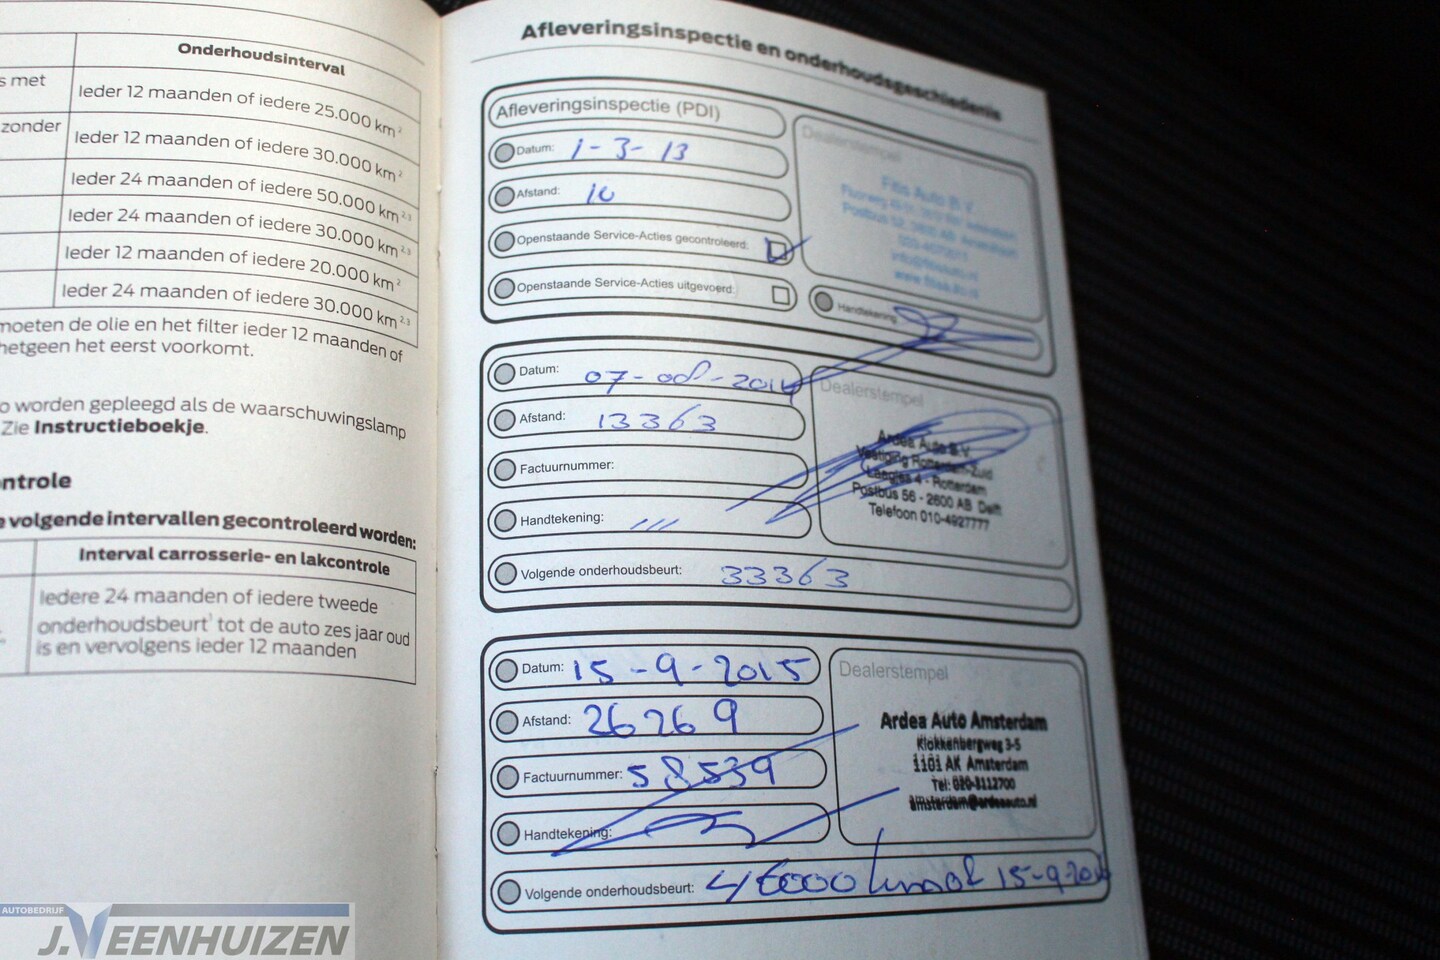 Onderhoudsinterval
s met
Ieder 12 maanden of iedere 25.000 km²
zonder
Ieder 12 maanden of iedere 30.000 km²
Ieder 24 maanden of iedere 50.000 km²,³
Ieder 24 maanden of iedere 30.000 km²,³
Ieder 12 maanden of iedere 20.000 km²
Ieder 24 maanden of iedere 30.000 km²,³
moeten de olie en het filter ieder 12 maanden of
hetgeen het eerst voorkomt.
o worden gepleegd als de waarschuwingslamp
Zie Instructieboekje.
ntrole
e volgende intervallen gecontroleerd worden:
Interval carrosserie- en lakcontrole
Iedere 24 maanden of iedere tweede
onderhoudsbeurt¹ tot de auto zes jaar oud
is en vervolgens ieder 12 maanden
Afleveringsinspectie en onderhoudsgeschiedenis
Afleveringsinspectie (PDI)
Datum: 1-3-13
Afstand: 10
Openstaande Service-Acties gecontroleerd:
Openstaande Service-Acties uitgevoerd:
Dealerstempel
Fitis Auto B.V.
Handtekening:
Datum: 07-08-2014
Afstand: 13363
Factuurnummer:
Handtekening:
Volgende onderhoudsbeurt: 33363
Dealerstempel
Ardea Auto B.V.
Vestiging Rotterdam-Zuid
Laagjes 4 - Rotterdam
Postbus 56 - 2600 AB Delft
Telefoon 010-4927777
Datum: 15-9-2015
Afstand: 26269
Factuurnummer: 58539
Handtekening:
Volgende onderhoudsbeurt: 46000 15-9-2016
Dealerstempel
Ardea Auto Amsterdam
Klokkenbergweg 3-5
1101 AK Amsterdam
Tel: 020-3112700
amsterdam@ardeaauto.nl
AUTOBEDRIJF
J. VEENHUIZEN